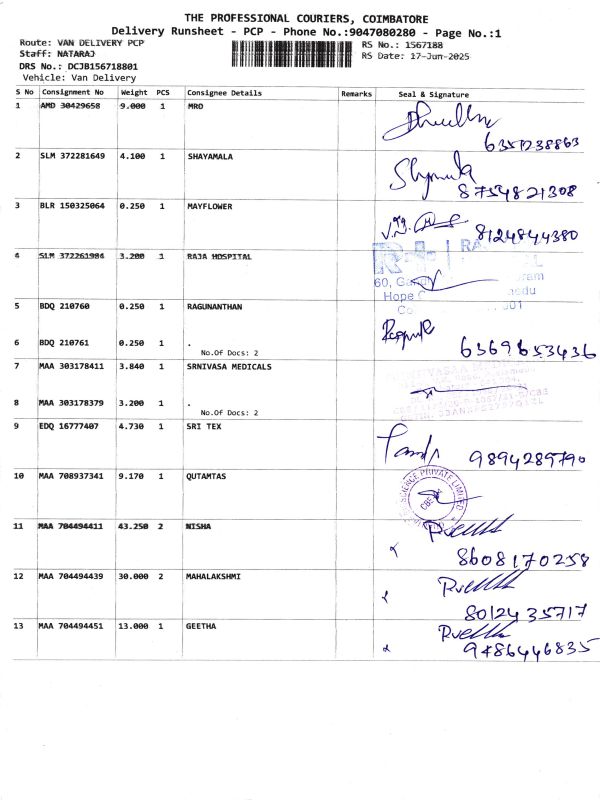 THE PROFESSIONAL COURIERS, COIMBATORE
Delivery Runsheet - PCP - Phone No.:9047080280 - Page No.:1
Route: VAN DELIVERY PCP
Staff: NATARAJ
DRS No.: DCJB156718801
Vehicle: Van Delivery
RS No.: 1567188
RS Date: 17-Jun-2025
S No Consignment No Weight PCS Consignee Details Remarks Seal & Signature
1 AMD 30429658 9.000 1 MRD
6351238863
2 SLM 372281649 4.100 1 SHAYAMALA
8754821308
3 BLR 150325064 0.250 1 MAYFLOWER
8124844380
4 SLM 372261984 3.200 1 RAJA HOSPITAL
60,
Hope
5 BDQ 210760 0.250 1 RAGUNANTHAN
6 BDQ 210761 0.250 1 .
No.Of Docs: 2
6369653436
7 MAA 303178411 3.840 1 SRNIVASA MEDICALS
8 MAA 303178379 3.200 1 .
No.Of Docs: 2
9 EDQ 16777407 4.730 1 SRI TEX
9894289790
10 MAA 708937341 9.170 1 QUTAMTAS
SCIENCE PRIVATE LIMITED
11 MAA 704494411 43.250 2 NISHA
8608170258
12 MAA 704494439 30.000 2 MAHALAKSHMI
8012435717
13 MAA 704494451 13.000 1 GEETHA
9486446835